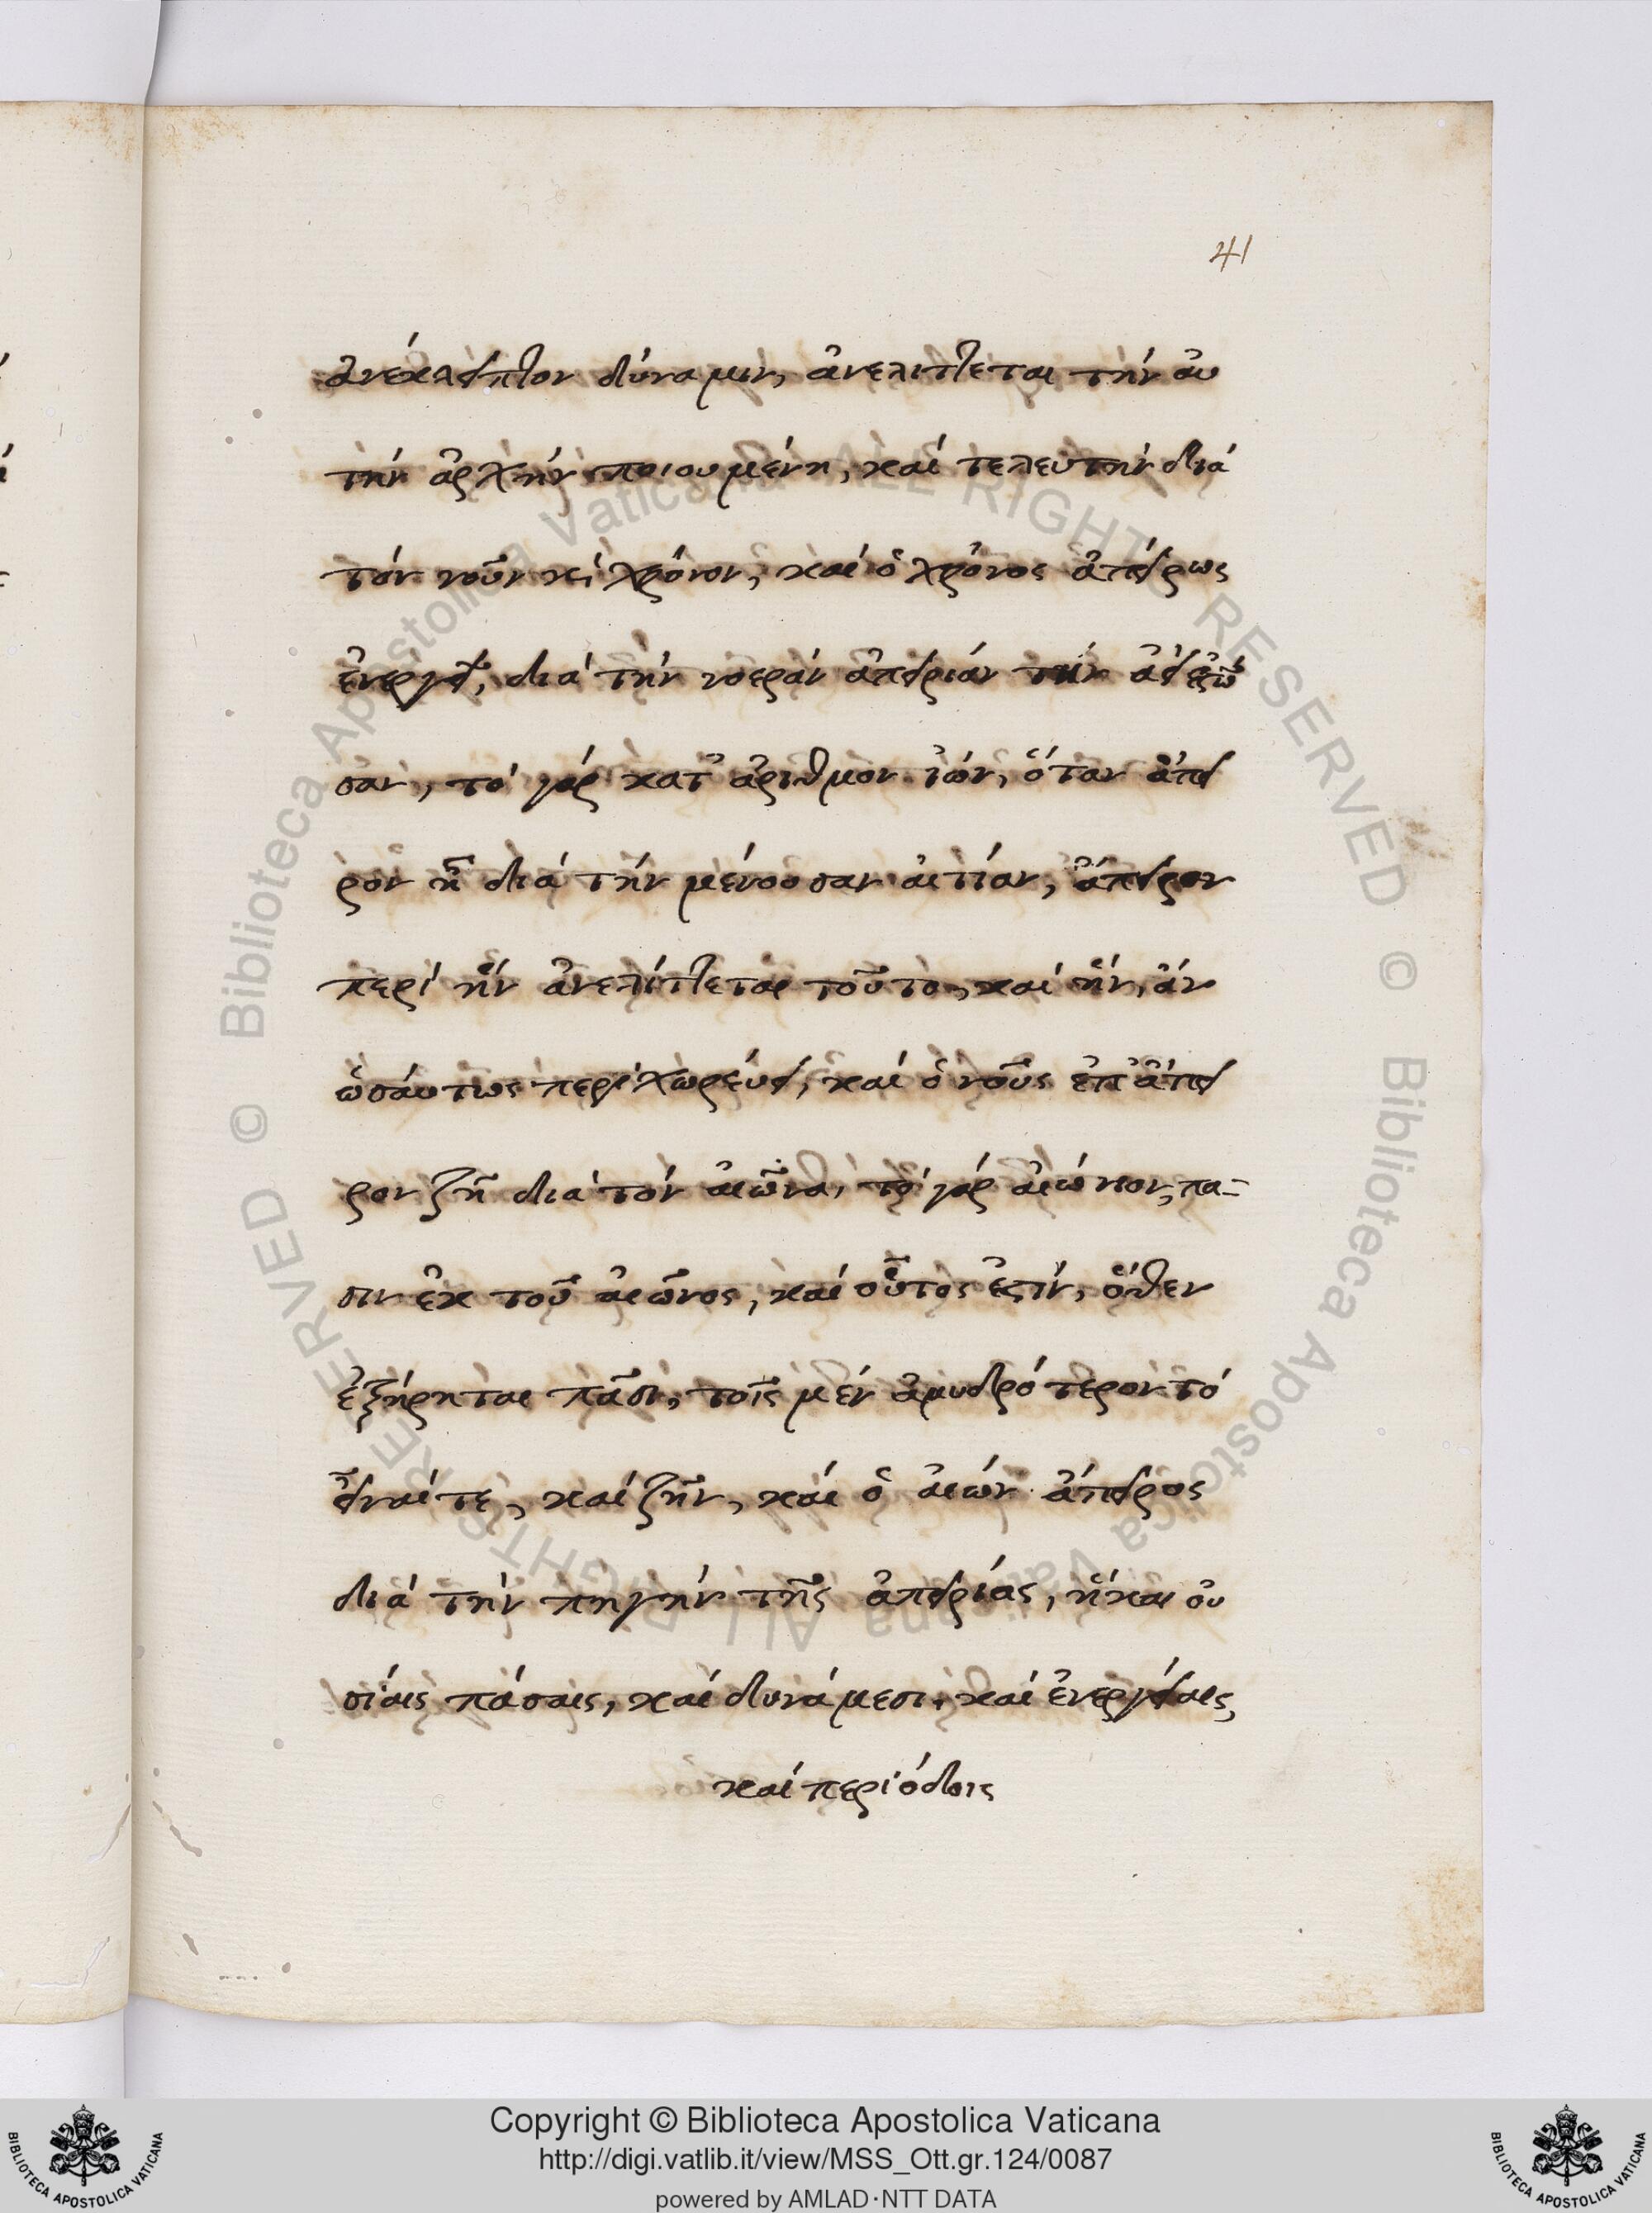 41
ἀνέκλειπτον δύναμιν, ἀνελίττεται τήν αὐ
τήν ἀρχήν ποιουμένη, καί τελευτήν διά
τόν νοῦν κ, χρόνον, καί ὁ χρόνος ἀπείρως
ἐνεργεῖ, διά τήν νοεράν ἀπειρίαν τήν ἀεί ἑστῶ
σαν, τό γάρ κατ' ἀριθμον ἰών, ὅταν ἄπει
ρον ᾖ διά τήν μένουσαν αἰτίαν, ἄπειρον
περί ἥν ἀνελίττεται τοῦτο, καί ἥν, ἄν
ὡσάυτως περιχωρεύει, καί ὁ νοῦς ἐπ' ἄπει
ρον ζῆ διά τόν αἰῶνα, τό γάρ αἰώνιον, πα-
σιν ἐκ τοῦ αἰῶνος, καί οὗτος ἐστίν, ὅθεν
ἐξήρηται πᾶσι, τοῖς μέν ἀμυδρότερον τό
εἶναί τε, καί ζῆν, καί ὁ αἰών ἄπειρος
διά τήν πηγήν τῆς ἀπειρίας, ἥ καί οὐ
σίαις πάσαις, καί δυνάμεσι, καί ἐνεργείαις,
καί περιόδοις
© Biblioteca Apostolica Vaticana ALL RIGHTS RESERVED © Biblioteca Apostolica Vaticana ALL RIGHTS RESERVED
Copyright © Biblioteca Apostolica Vaticana
http://digi.vatlib.it/view/MSS_Ott.gr.124/0087
powered by AMLAD·NTT DATA
BIBLIOTECA APOSTOLICA VATICANA
BIBLIOTECA APOSTOLICA VATICANA